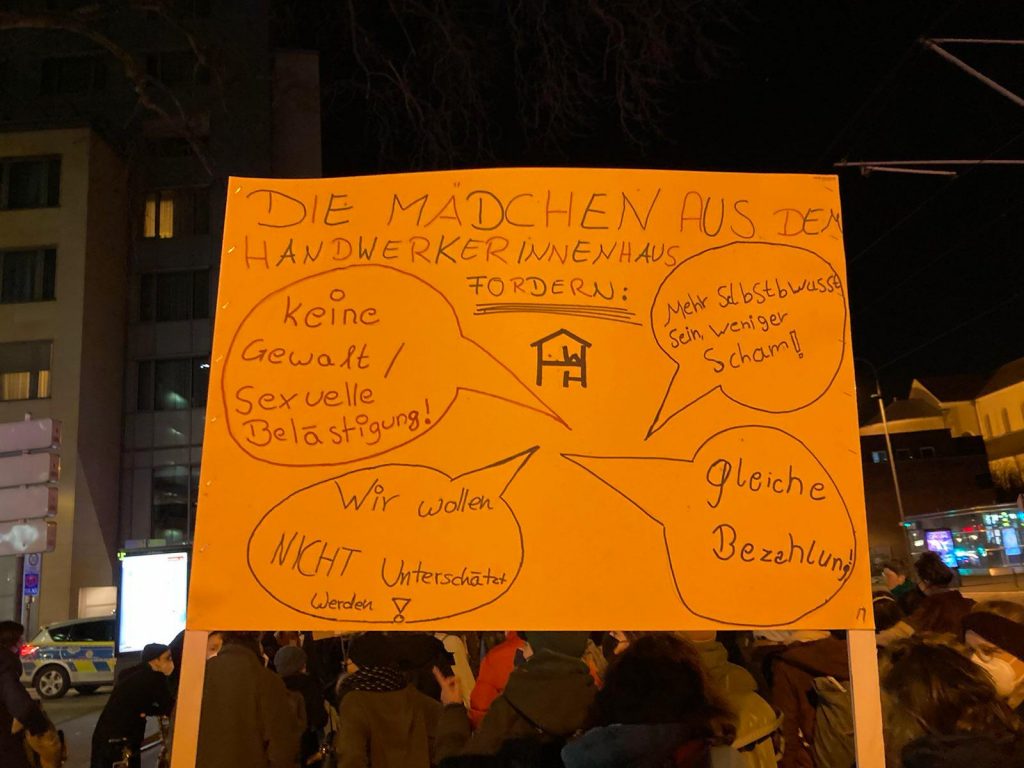 DIE MÄDCHEN AUS DEM
HANDWERKERINNENHAUS
FORDERN:
keine
Gewalt /
Sexuelle
Belästigung!
Mehr Selbstbwusst
Sein, weniger
Scham!
HWH
Wir wollen
NICHT Unterschätzt
werden!
gleiche
Bezahlung!